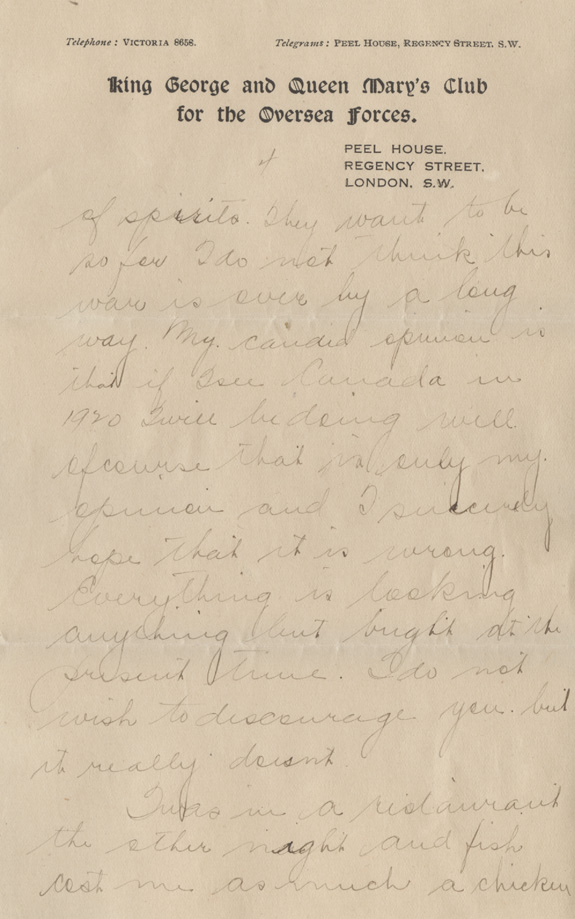 Telephone: VICTORIA 8658. Telegrams: PEEL HOUSE, REGENCY STREET, S.W.
King George and Queen Mary's Club
for the Oversea Forces.
PEEL HOUSE,
REGENCY STREET,
LONDON, S.W.
4
of spirits. They want to be
so for I do not think this
war is over by a long
way. My candid opinion is
that if I see Canada in
1920 I will be doing well
ofcourse that is only my
opinion and I sincerely
hope that it is wrong.
Everything is looking
anything but bright at the
present time. I do not
wish to discourage you. but
it really doesnt.
I was in a restaurant
the other night and fish
cost me as much a chicken